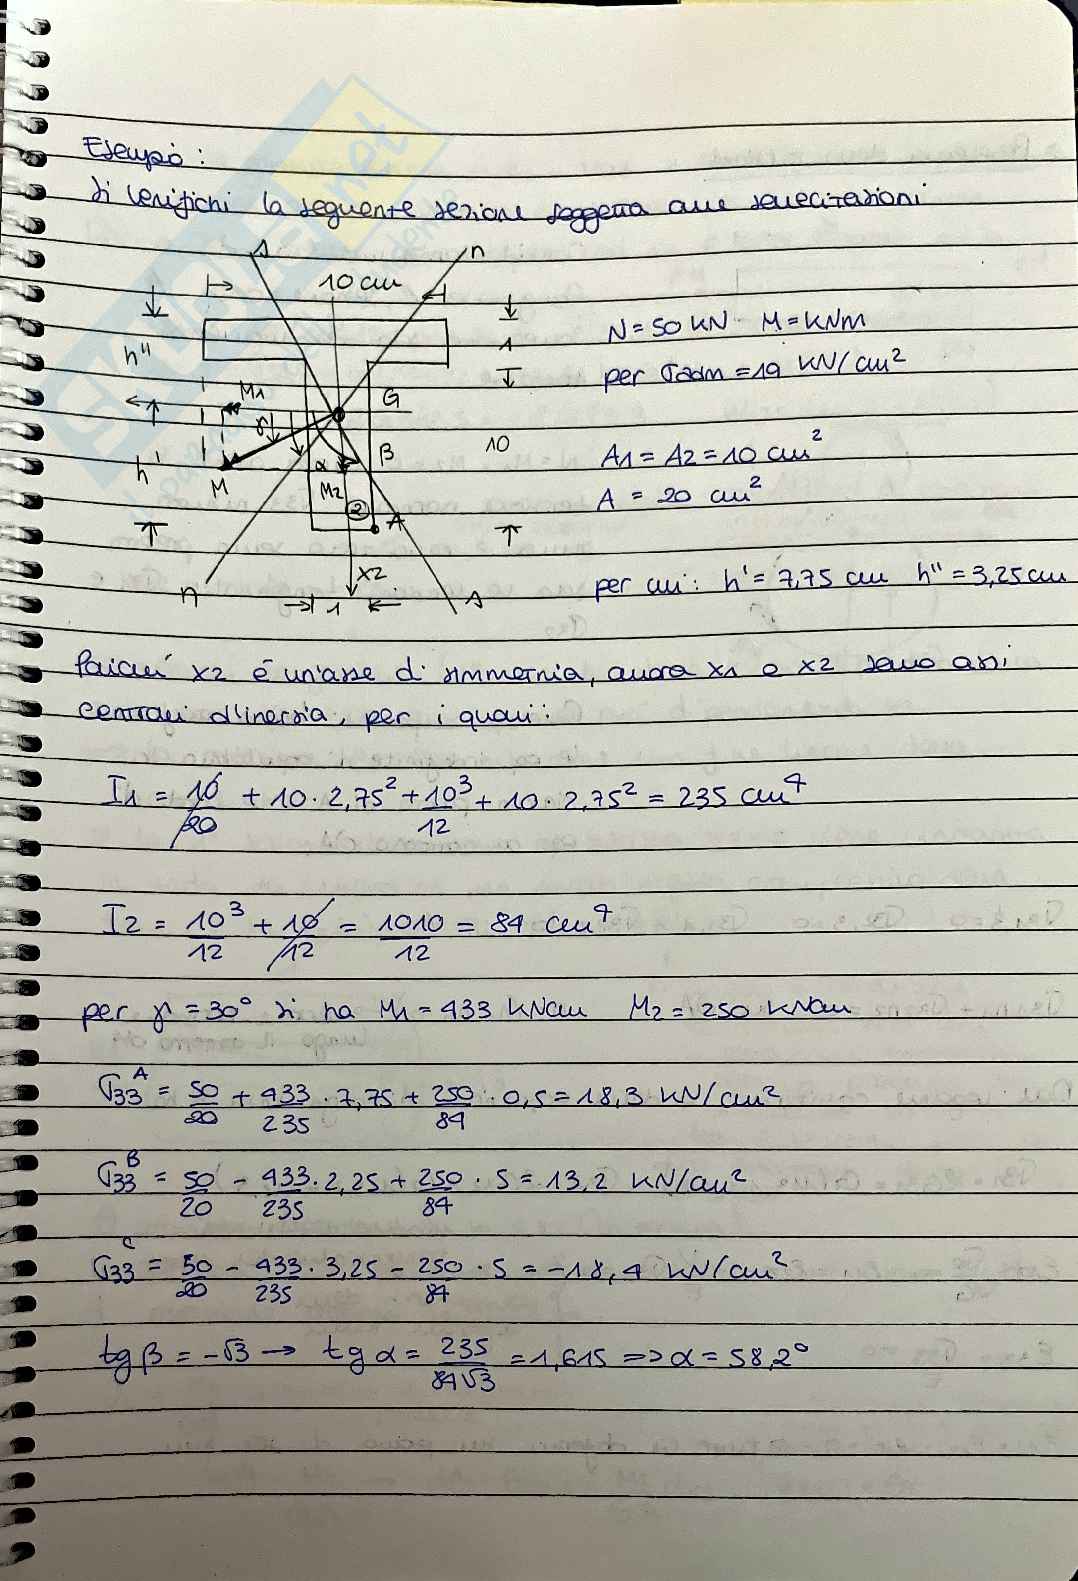 Esempio:
Si verifichi la seguente sezione soggetta alle sollecitazioni
s
n
10 cm
h''
1
N = 50 KN M = KNm
per σadm = 19 KN/cm²
M1
G
γ
h'
α
β
10
A1 = A2 = 10 cm²
M
M2
2
A
A = 20 cm²
x2
n
1
s
per cui: h' = 7,75 cm h'' = 3,25 cm
Poiché x2 è un'asse di simmetria, allora x1 e x2 sono assi
centrali d'inerzia, per i quali:
I1 = 10/20 + 10 · 2,75² + 10³/12 + 10 · 2,75² = 235 cm⁴
I2 = 10³/12 + 10/12 = 1010/12 = 84 cm⁴
per γ = 30° si ha M1 = 433 KNcm M2 = 250 KNcm
σ33^A = 50/20 + 433/235 · 7,75 + 250/84 · 0,5 = 18,3 KN/cm²
σ33^B = 50/20 - 433/235 · 2,25 + 250/84 · 5 = 13,2 KN/cm²
σ33^C = 50/20 - 433/235 · 3,25 - 250/84 · 5 = -18,4 KN/cm²
tg β = -√3 → tg α = 235/84√3 = 1,615 => α = 58,2°